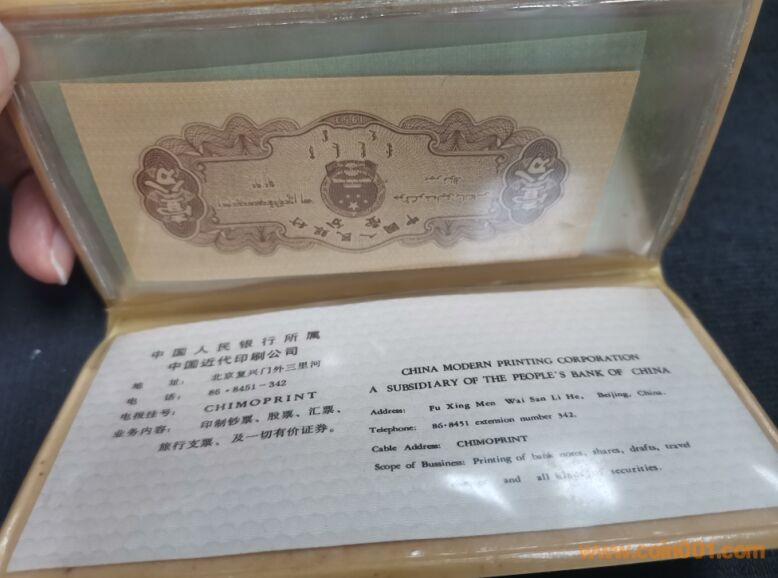 1953
壹分
壹分
中国人民银行
中国人民银行所属
中国近代印刷公司
地 址: 北京复兴门外三里河
电 话: 86·8451-342
电报挂号: CHIMOPRINT
业务内容: 印制钞票、股票、汇票、
旅行支票、及一切有价证券。
CHINA MODERN PRINTING CORPORATION
A SUBSIDIARY OF THE PEOPLE'S BANK OF CHINA
Address: Fu Xing Men Wai San Li He, Beijing, China.
Telephone: 86·8451 extension number 342.
Cable Address: CHIMOPRINT
Scope of Bussiness: Printing of bank notes, shares, drafts, travel
and all kinds of securities.
www.coin001.com